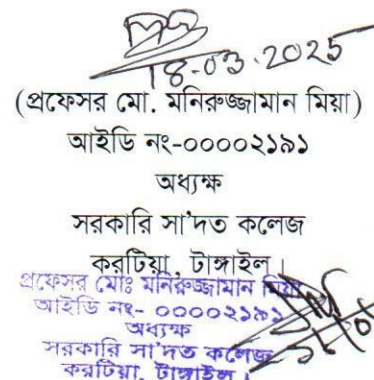 18-03-2025
(প্রফেসর মো. মনিরুজ্জামান মিয়া)
আইডি নং-০০০০২১৯১
অধ্যক্ষ
সরকারি সা'দত কলেজ
করটিয়া, টাঙ্গাইল।
প্রফেসর মোঃ মনিরুজ্জামান মিয়া
আইডি নং- ০০০০২১৯১
অধ্যক্ষ
সরকারি সা'দত কলেজ
করটিয়া, টাঙ্গাইল।